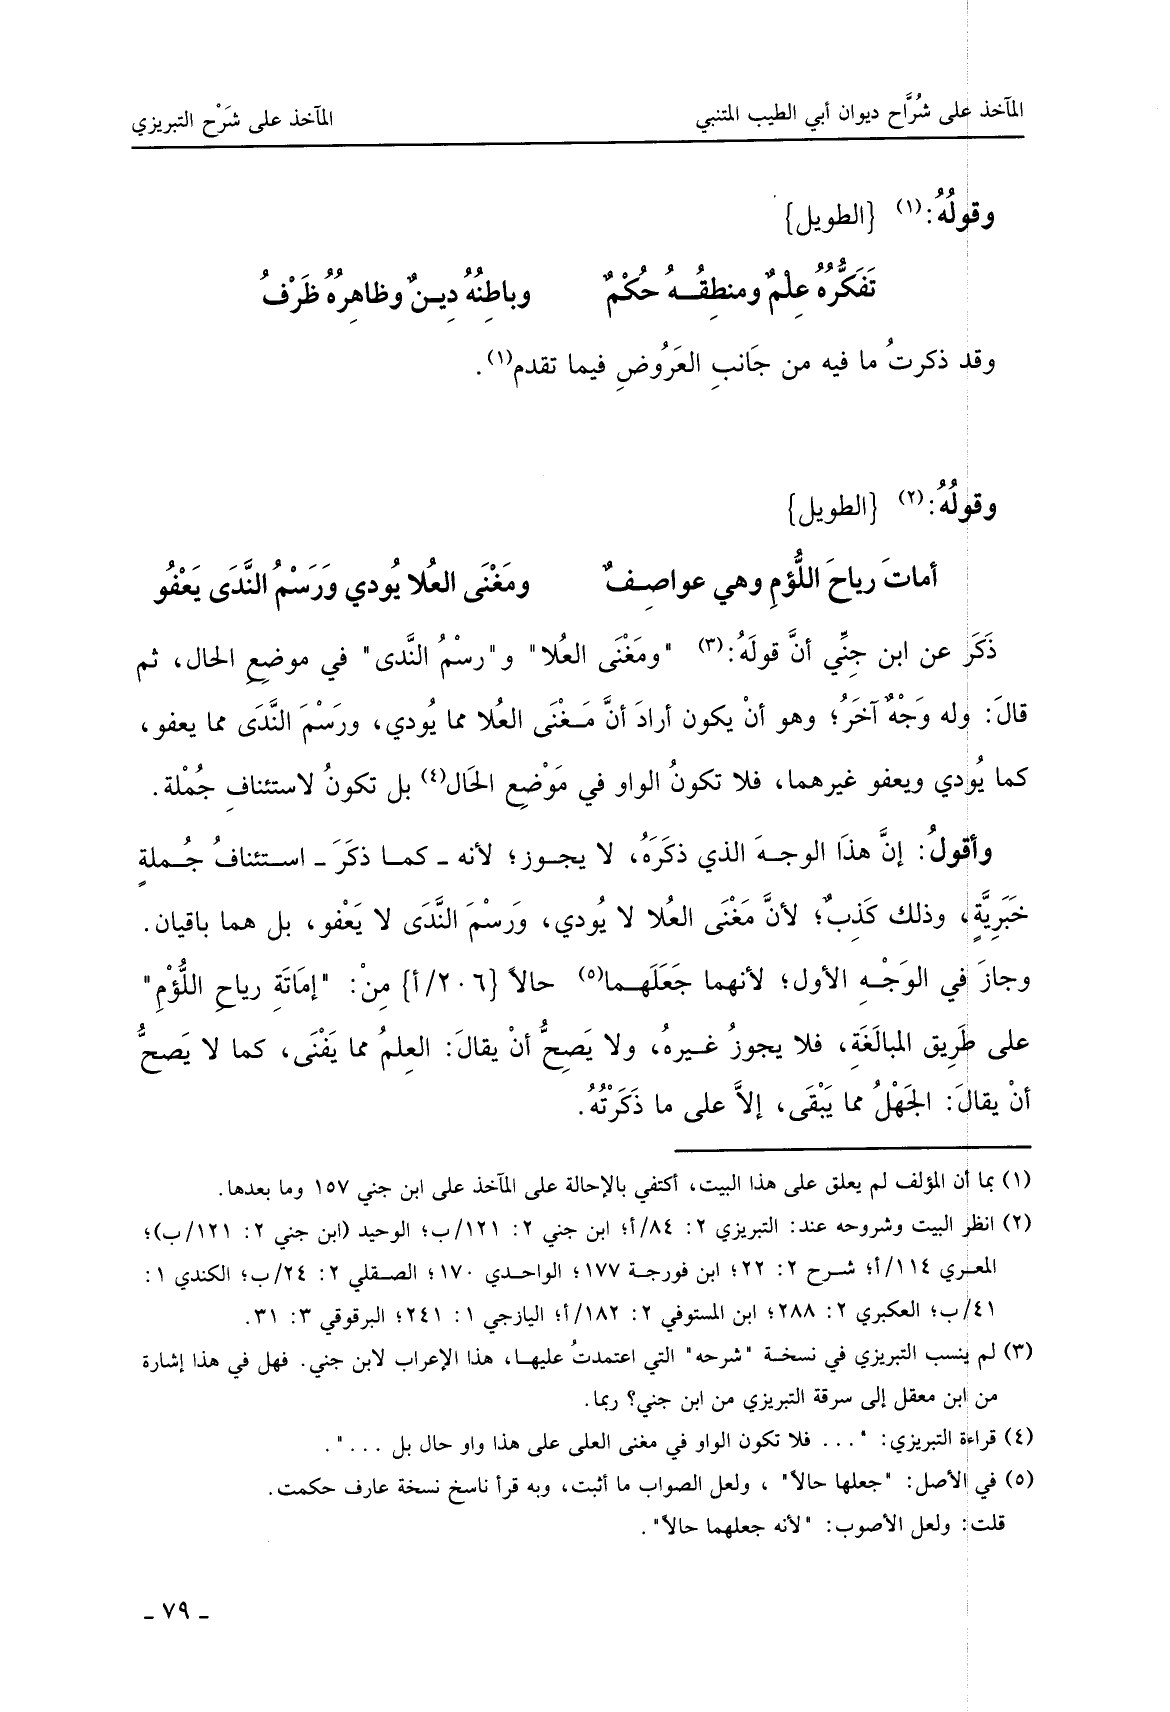 المآخذ على شُرَّاح ديوان أبي الطيب المتنبي المآخذ على شَرْح التبريزي
وقولُهُ:(١) {الطويل}
تَفَكُّرُهُ عِلْمٌ ومنطِقُـــهُ حُكْمٌ وباطِنُهُ دِيـنٌ وظاهِرُهُ ظَرْفُ
وقد ذكرتُ ما فيه من جَانبِ العَرُوضِ فيما تقدم(١).
وقولُهُ:(٢) {الطويل}
أماتَ رياحَ اللُّؤمِ وهي عواصِـفٌ ومَغْنَى العُلا يُودي وَرَسْمُ النَّدَى يَعْفُو
ذَكَرَ عن ابن جِنِّي أنَّ قولَهُ:(٣) "ومَغْنَى العُلا" و"رسْمُ النَّدى" في موضعِ الحال، ثم
قالَ: وله وَجْهٌ آخَرُ؛ وهو أنْ يكون أرادَ أنَّ مَـغْنَى العُلا مما يُودي، ورَسْمَ النَّدَى مما يعفو،
كما يُودي ويعفو غيرهما، فلا تكونُ الواو في مَوْضعِ الحَال(٤) بل تكونُ لاستئنافِ جُمْلة.
وأقولُ: إنَّ هذَا الوجـهَ الذي ذكَرَهُ، لا يجـوز؛ لأنه ـ كمـا ذكَرَ ـ استئنافُ جُـملةٍ
خَبَرِيَّةٍ، وذلك كَذِبٌ؛ لأنَّ مَغْنَى العُلا لا يُودي، وَرسْمَ النَّدَى لا يَعْفو، بل هما باقيان.
وجازَ في الوَجْـهِ الأول؛ لأنهما جَعَلَهـما(٥) حالاً {٢٠٦/أ} مِنْ: "إمَاتَةِ رياحِ اللُّؤمِ"
على طَرِيق المبالَغَةِ، فلا يجوزُ غـيرهُ، ولا يَصِحُّ أنْ يقالَ: العِلمُ مما يَفْنَى، كما لا يَصحُّ
أنْ يقالَ: الجَهْلُ مما يَبْقَى، إلاَّ على ما ذَكَرْتُهُ.
(١) بما أن المؤلف لم يعلق على هذا البيت، أكتفي بالإحالة على المآخذ على ابن جني ١٥٧ وما بعدها.
(٢) انظر البيت وشروحه عند: التبريزي ٢: ٨٤/أ؛ ابن جني ٢: ١٢١/ب؛ الوحيد (ابن جني ٢: ١٢١/ب)؛
المعـري ١١٤/أ؛ شـرح ٢: ٢٢؛ ابن فورجـة ١٧٧؛ الواحـدي ١٧٠؛ الصـقلي ٢: ٢٤/ب؛ الكندي ١:
٤١/ب؛ العكبري ٢: ٢٨٨؛ ابن المستوفي ٢: ١٨٢/أ؛ اليازجي ١: ٢٤١؛ البرقوقي ٣: ٣١.
(٣) لم ينسب التبريزي في نسخـة "شرحه" التي اعتمدتُ عليهـا، هذا الإعراب لابن جني. فهل في هذا إشارة
من ابن معقل إلى سرقة التبريزي من ابن جني؟ ربما.
(٤) قراءة التبريزي: "... فلا تكون الواو في مغنى العلى على هذا واو حال بل ...".
(٥) في الأصل: "جعلها حالاً" ، ولعل الصواب ما أثبت، وبه قرأ ناسخ نسخة عارف حكمت.
قلت: ولعل الأصوب: "لأنه جعلهما حالاً".
ـ ٧٩ ـ